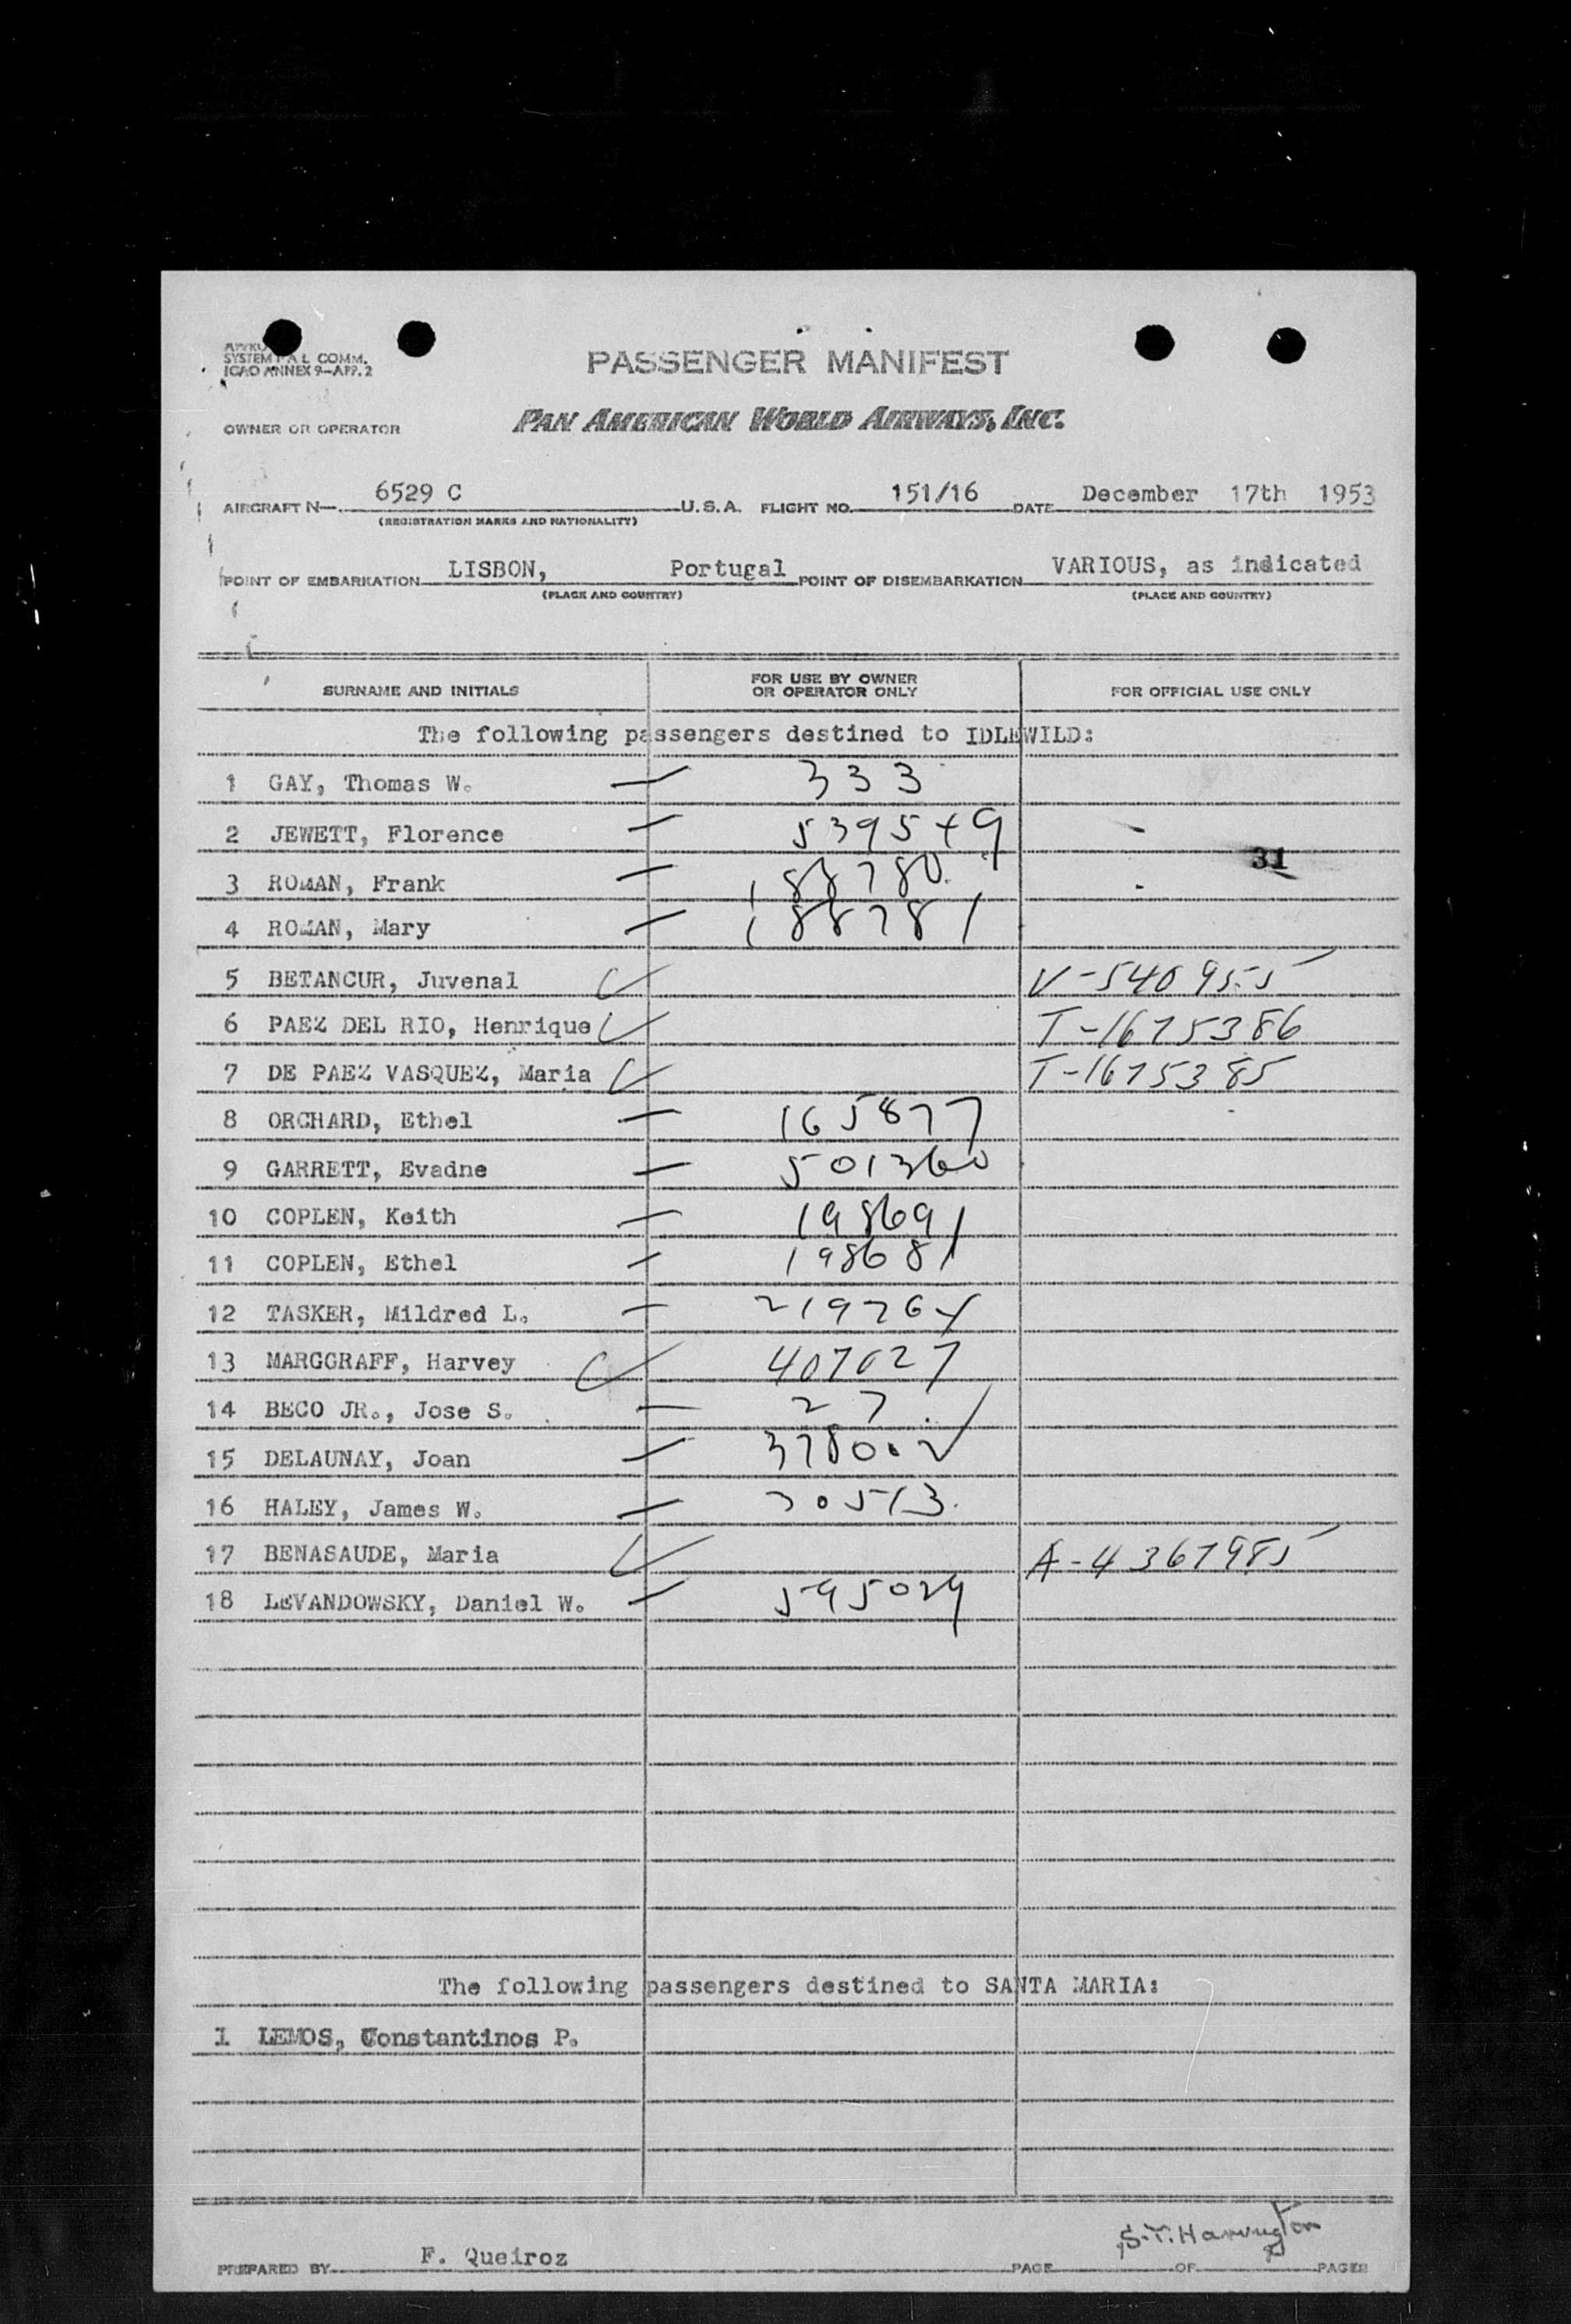 SYSTEM P A L COMM.
ICAO ANNEX 9—APP. 2
PASSENGER MANIFEST
OWNER OR OPERATOR PAN AMERICAN WORLD AIRWAYS, INC.
AIRCRAFT N— 6529 C U.S.A. FLIGHT NO. 151/16 DATE December 17th 1953
(REGISTRATION MARKS AND NATIONALITY)
POINT OF EMBARKATION LISBON, Portugal POINT OF DISEMBARKATION VARIOUS, as indicated
(PLACE AND COUNTRY) (PLACE AND COUNTRY)
SURNAME AND INITIALS FOR USE BY OWNER OR OPERATOR ONLY FOR OFFICIAL USE ONLY
The following passengers destined to IDLEWILD:
1 GAY, Thomas W. — 333
2 JEWETT, Florence — 539549
31
3 ROMAN, Frank — 188780
4 ROMAN, Mary — 188781
5 BETANCUR, Juvenal ✓ V-540955
6 PAEZ DEL RIO, Henrique ✓ T-1675386
7 DE PAEZ VASQUEZ, Maria ✓ T-1675385
8 ORCHARD, Ethel — 165877
9 GARRETT, Evadne — 501360
10 COPLEN, Keith — 198691
11 COPLEN, Ethel — 198681
12 TASKER, Mildred L. — 219764
13 MARGGRAFF, Harvey ✓ 407027
14 BECO JR., Jose S. — 27
15 DELAUNAY, Joan — 378002
16 HALEY, James W. — 30513
17 BENASAUDE, Maria ✓ A-4367985
18 LEVANDOWSKY, Daniel W. — 595029
The following passengers destined to SANTA MARIA:
1 LEMOS, Constantinos P.
S.T. Harrington
PREPARED BY F. Queiroz PAGE OF PAGES